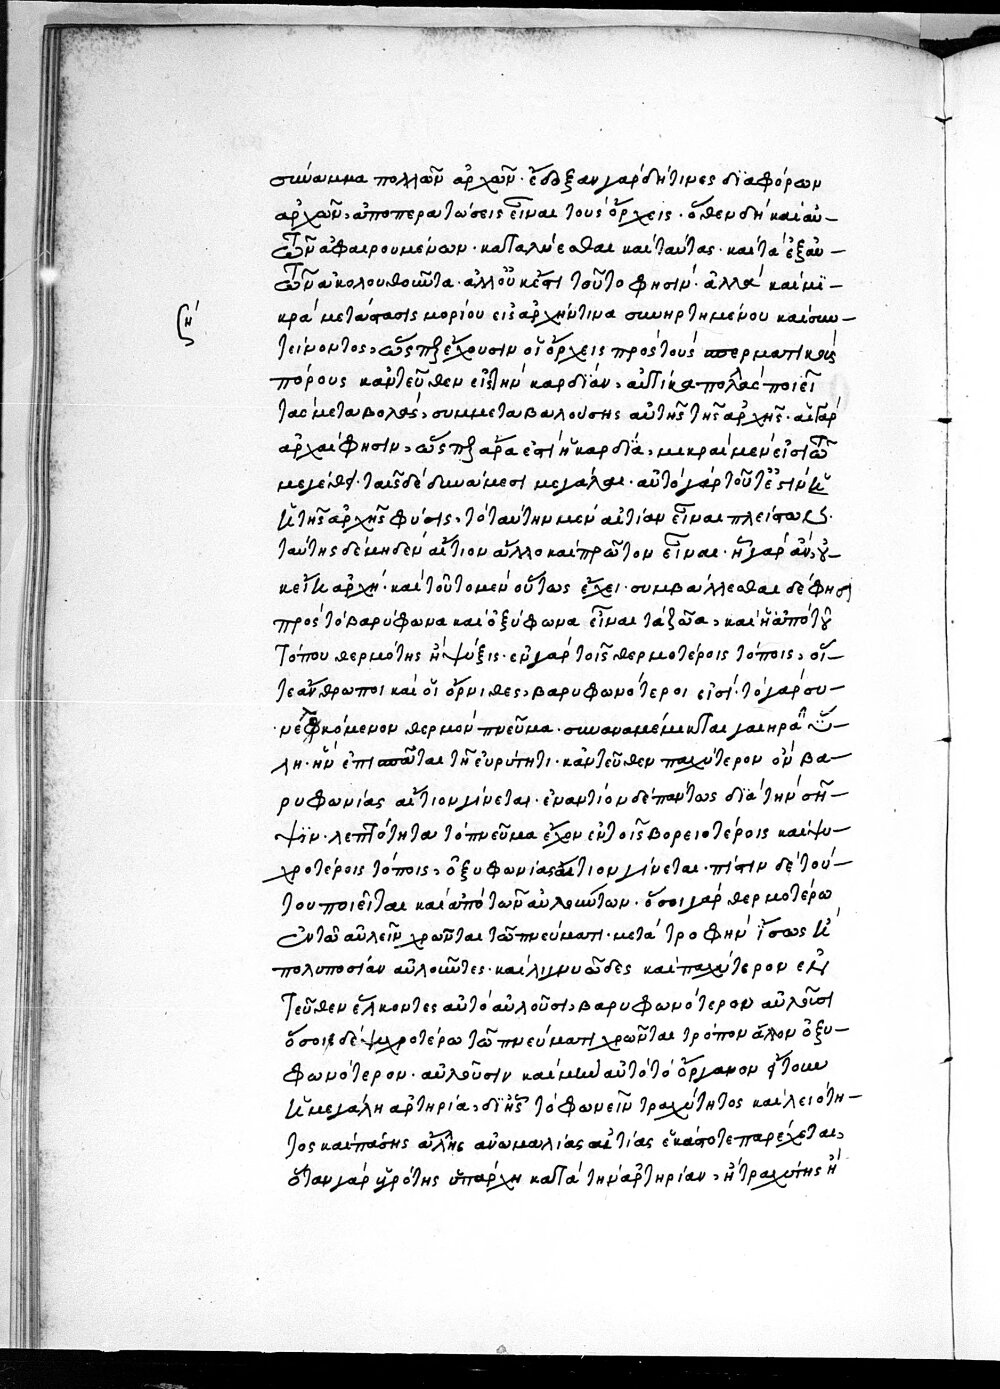 σύναμμα πολλῶν ἀρχῶν· ἔδοξαν γὰρ δή τινες διαφόρων
ἀρχῶν, ἀποπερατώσεις εἶναι τοὺς ὄρχεις· ὅθεν δὴ καὶ αὐ-
τῶν ἀφαιρουμένων· καταλύεσθαι καὶ ταύτας· καὶ τὰ ἐξ αὐ-
τῶν ἀκολουθοῦντα· ἀλλ' οὐκ ἔστι τοῦτο φησίν· ἀλλὰ καὶ μι-
ζή
κρὰ μετάστασις μορίου εἰς ἀρχήν τινα συνηρτημένου καὶ συν-
τείνοντος, ὥσπερ ἔχουσιν οἱ ὄρχεις πρὸς τοὺς σπερματικοὺς
πόρους κἀντεῦθεν εἰς τὴν καρδίαν, αὐτίκα πολλὰς ποιεῖ
τὰς μεταβολάς, συμμεταβαλούσης αὐτῆς τῆς ἀρχῆς· αἱ γὰρ
ἀρχαί φησιν, ὥσπερ ἄρα ἐστὶ ἡ καρδία, μικραὶ μέν εἰσι τῷ
μεγέθει· ταῖς δὲ δυνάμεσι μεγάλαι· αὐτὸ γὰρ τοῦτ' ἔστιν καὶ
ἡ τῆς ἀρχῆς φύσις, τὸ ταύτην μὲν αἰτίαν εἶναι πλείστων·
ταύτης δὲ μηδὲν αἴτιον ἄλλο καὶ πρῶτον εἶναι· ἢ γὰρ ἂν οὐ-
κέτι ἀρχή· καὶ τοῦτο μὲν οὕτως ἔχει· συμβάλλεσθαι δέ φησι
πρὸς τὸ βαρύφωνα καὶ ὀξύφωνα εἶναι τὰ ζῶα, καὶ ἡ ἀπὸ τοῦ
τόπου θερμότης ἢ ψύξις· ἐν γὰρ τοῖς θερμοτέροις τόποις, οἵ-
τε ἄνθρωποι καὶ οἱ ὄρνιθες, βαρυφωνότεροί εἰσι· τὸ γὰρ συ-
νεφελκόμενον θερμὸν πνεῦμα· συναναμέμικται
λη· ἣν ἐπισπᾶται τῇ εὐρύτητι· κἀντεῦθεν παχύτερον ὂν βα-
ρυφωνίας αἴτιον γίνεται· ἐναντίον δὲ πάντως διὰ τὴν στῆ-
ψιν· λεπτότητα τὸ πνεῦμα ἔχον ἐν τοῖς βορειοτέροις καὶ ψυ-
χροτέροις τόποις, ὀξυφωνίας αἴτιον γίνεται· πίστιν δὲ τού-
του ποιεῖται καὶ ἀπὸ τῶν αὐλούντων· ὅσοι γὰρ θερμοτέρω
ἐν τῷ αὐλεῖν χρῶνται τῷ πνεύματι· μετὰ τροφὴν ἴσως καὶ
πολυποσίαν αὐλοῦντες· καὶ λιγνυῶδες καὶ παχύτερον ἐν
τεῦθεν ἕλκοντες αὐτὸ αὐλοῦσι, βαρυφωνότερον αὐλοῦσι
ὅσοι δὲ ψυχροτέρω τῷ πνεύματι χρῶνται τρόπον ἄλλον ὀξυ-
φωνότερον· αὐλοῦσιν καὶ μὴν αὐτὸ τὸ ὄργανον ἤτουν
ἡ μεγάλη ἀρτηρία, δι' ἧς τὸ φωνεῖν τραχύτητος καὶ λειότη-
τος καὶ πάσης ἄλλης ἀνωμαλίας αἰτίας ἑκάστοτε παρέχεται,
ὅταν γὰρ ὑγρότης ὑπάρχη κατὰ τὴν ἀρτηρίαν, ἢ τραχύτης ἢ